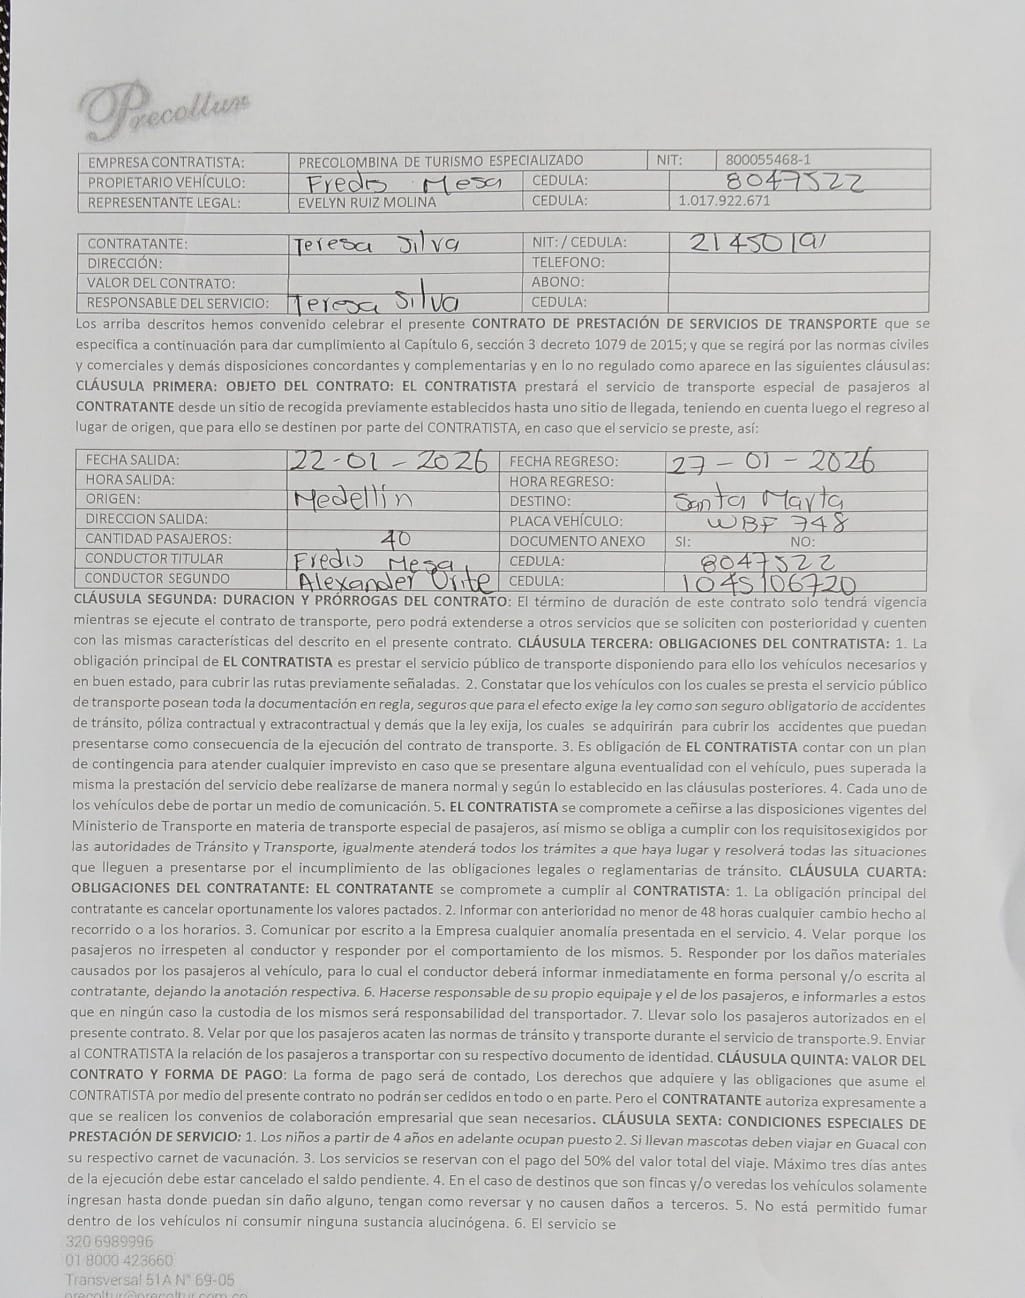 Precoltur
EMPRESA CONTRATISTA: PRECOLOMBINA DE TURISMO ESPECIALIZADO NIT: 800055468-1
PROPIETARIO VEHÍCULO: Fredis Mesa CEDULA: 8047522
REPRESENTANTE LEGAL: EVELYN RUIZ MOLINA CEDULA: 1.017.922.671
CONTRATANTE: Teresa Silva NIT: / CEDULA: 21450191
DIRECCIÓN: TELEFONO:
VALOR DEL CONTRATO: ABONO:
RESPONSABLE DEL SERVICIO: Teresa Silva CEDULA:
Los arriba descritos hemos convenido celebrar el presente CONTRATO DE PRESTACIÓN DE SERVICIOS DE TRANSPORTE que se
especifica a continuación para dar cumplimiento al Capítulo 6, sección 3 decreto 1079 de 2015; y que se regirá por las normas civiles
y comerciales y demás disposiciones concordantes y complementarias y en lo no regulado como aparece en las siguientes cláusulas:
CLÁUSULA PRIMERA: OBJETO DEL CONTRATO: EL CONTRATISTA prestará el servicio de transporte especial de pasajeros al
CONTRATANTE desde un sitio de recogida previamente establecidos hasta uno sitio de llegada, teniendo en cuenta luego el regreso al
lugar de origen, que para ello se destinen por parte del CONTRATISTA, en caso que el servicio se preste, así:
FECHA SALIDA: 22-01-2026 FECHA REGRESO: 27-01-2026
HORA SALIDA: HORA REGRESO:
ORIGEN: Medellín DESTINO: Santa Marta
DIRECCION SALIDA: PLACA VEHÍCULO: WBF 748
CANTIDAD PASAJEROS: 40 DOCUMENTO ANEXO SI: NO:
CONDUCTOR TITULAR Fredis Mesa CEDULA: 8047522
CONDUCTOR SEGUNDO Alexander CEDULA: 1045106720
CLÁUSULA SEGUNDA: DURACION Y PRÓRROGAS DEL CONTRATO: El término de duración de este contrato solo tendrá vigencia
mientras se ejecute el contrato de transporte, pero podrá extenderse a otros servicios que se soliciten con posterioridad y cuenten
con las mismas características del descrito en el presente contrato. CLÁUSULA TERCERA: OBLIGACIONES DEL CONTRATISTA: 1. La
obligación principal de EL CONTRATISTA es prestar el servicio público de transporte disponiendo para ello los vehículos necesarios y
en buen estado, para cubrir las rutas previamente señaladas. 2. Constatar que los vehículos con los cuales se presta el servicio público
de transporte posean toda la documentación en regla, seguros que para el efecto exige la ley como son seguro obligatorio de accidentes
de tránsito, póliza contractual y extracontractual y demás que la ley exija, los cuales se adquirirán para cubrir los accidentes que puedan
presentarse como consecuencia de la ejecución del contrato de transporte. 3. Es obligación de EL CONTRATISTA contar con un plan
de contingencia para atender cualquier imprevisto en caso que se presentare alguna eventualidad con el vehículo, pues superada la
misma la prestación del servicio debe realizarse de manera normal y según lo establecido en las cláusulas posteriores. 4. Cada uno de
los vehículos debe de portar un medio de comunicación. 5. EL CONTRATISTA se compromete a ceñirse a las disposiciones vigentes del
Ministerio de Transporte en materia de transporte especial de pasajeros, así mismo se obliga a cumplir con los requisitosexigidos por
las autoridades de Tránsito y Transporte, igualmente atenderá todos los trámites a que haya lugar y resolverá todas las situaciones
que lleguen a presentarse por el incumplimiento de las obligaciones legales o reglamentarias de tránsito. CLÁUSULA CUARTA:
OBLIGACIONES DEL CONTRATANTE: EL CONTRATANTE se compromete a cumplir al CONTRATISTA: 1. La obligación principal del
contratante es cancelar oportunamente los valores pactados. 2. Informar con anterioridad no menor de 48 horas cualquier cambio hecho al
recorrido o a los horarios. 3. Comunicar por escrito a la Empresa cualquier anomalía presentada en el servicio. 4. Velar porque los
pasajeros no irrespeten al conductor y responder por el comportamiento de los mismos. 5. Responder por los daños materiales
causados por los pasajeros al vehículo, para lo cual el conductor deberá informar inmediatamente en forma personal y/o escrita al
contratante, dejando la anotación respectiva. 6. Hacerse responsable de su propio equipaje y el de los pasajeros, e informarles a estos
que en ningún caso la custodia de los mismos será responsabilidad del transportador. 7. Llevar solo los pasajeros autorizados en el
presente contrato. 8. Velar por que los pasajeros acaten las normas de tránsito y transporte durante el servicio de transporte.9. Enviar
al CONTRATISTA la relación de los pasajeros a transportar con su respectivo documento de identidad. CLÁUSULA QUINTA: VALOR DEL
CONTRATO Y FORMA DE PAGO: La forma de pago será de contado, Los derechos que adquiere y las obligaciones que asume el
CONTRATISTA por medio del presente contrato no podrán ser cedidos en todo o en parte. Pero el CONTRATANTE autoriza expresamente a
que se realicen los convenios de colaboración empresarial que sean necesarios. CLÁUSULA SEXTA: CONDICIONES ESPECIALES DE
PRESTACIÓN DE SERVICIO: 1. Los niños a partir de 4 años en adelante ocupan puesto 2. Si llevan mascotas deben viajar en Guacal con
su respectivo carnet de vacunación. 3. Los servicios se reservan con el pago del 50% del valor total del viaje. Máximo tres días antes
de la ejecución debe estar cancelado el saldo pendiente. 4. En el caso de destinos que son fincas y/o veredas los vehículos solamente
ingresan hasta donde puedan sin daño alguno, tengan como reversar y no causen daños a terceros. 5. No está permitido fumar
dentro de los vehículos ni consumir ninguna sustancia alucinógena. 6. El servicio se
320 6989996
01 8000 423660
Transversal 51A N° 69-05
precoltur@precoltur.com.co